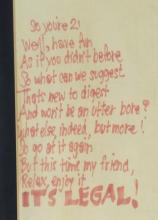 So you're 21
Well, have fun
As if you didn't before
So what can we suggest
That's new to digest
And won't be an utter bore?
What else, indeed, but more!
So go at it again
But this time my friend,
Relax, enjoy it
IT'S LEGAL!